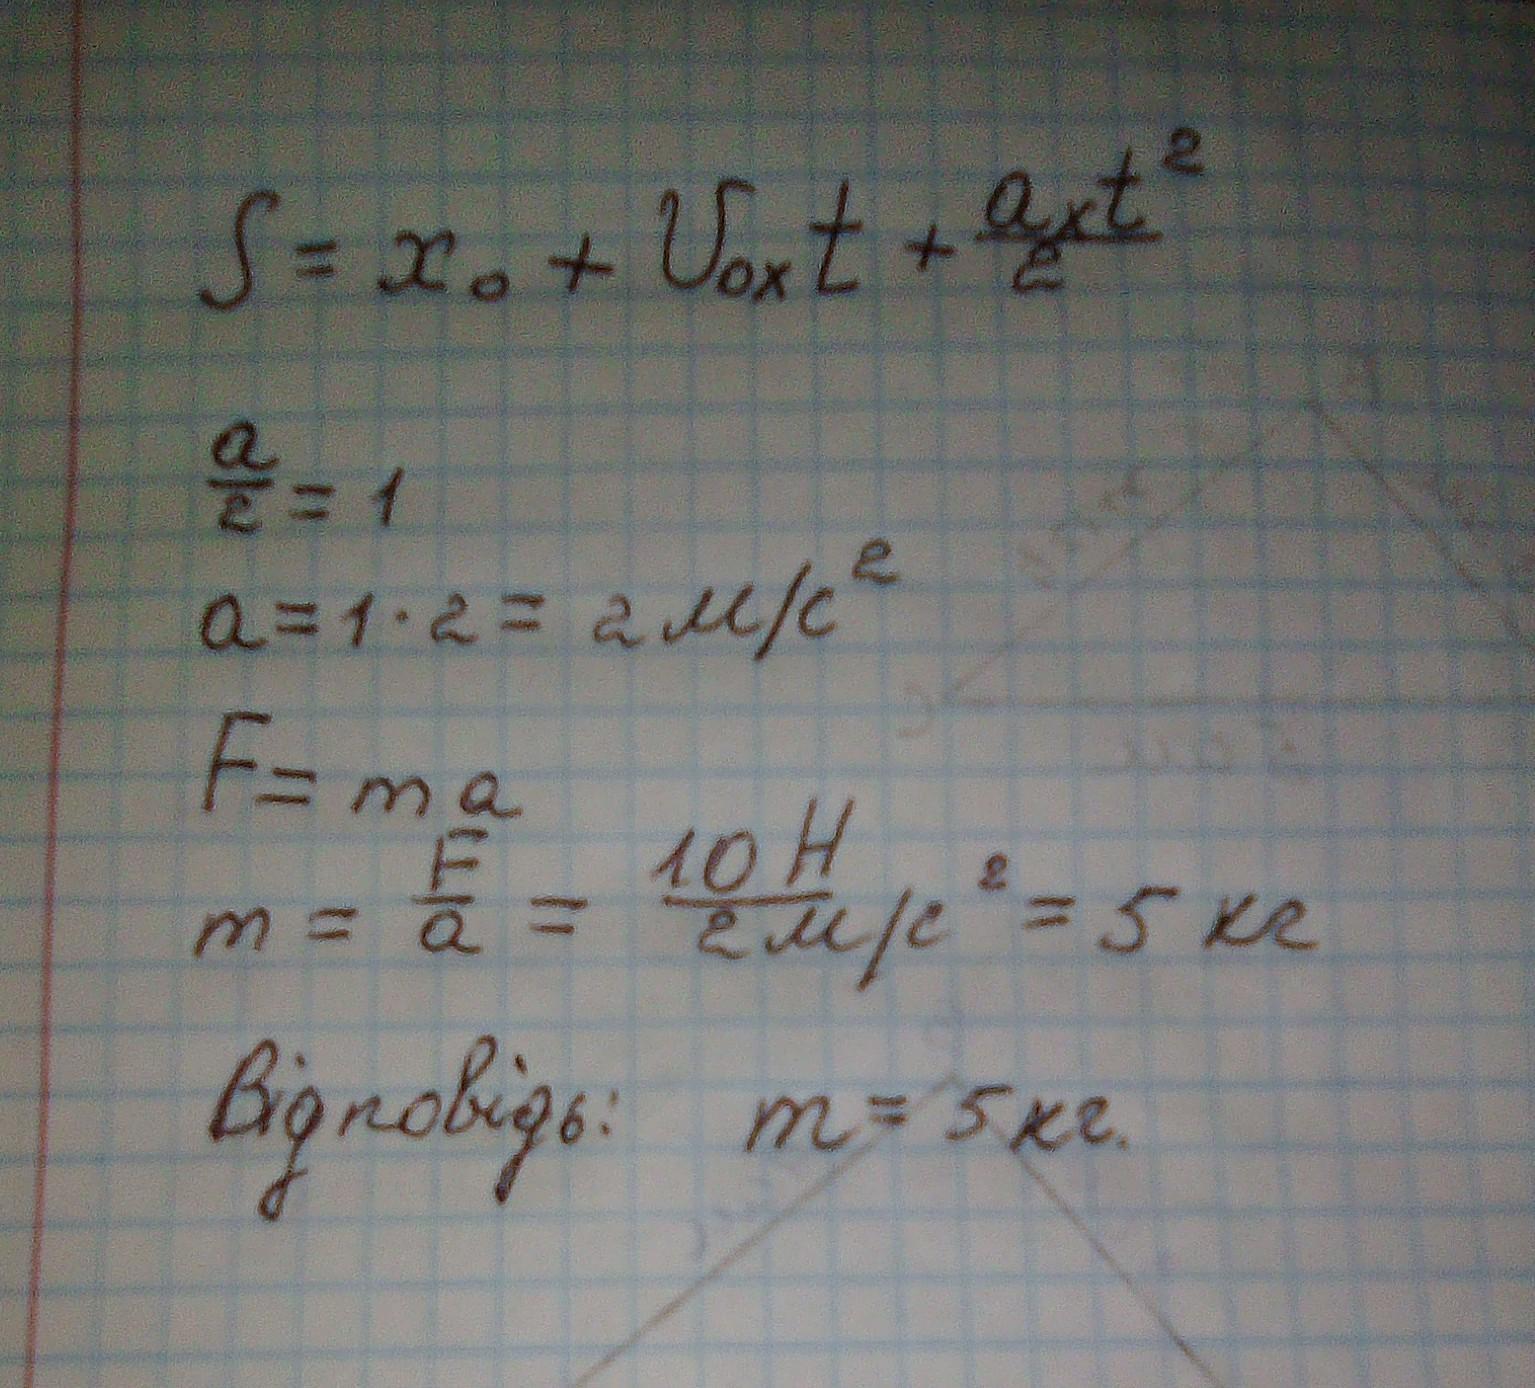 S = x₀ + υ₀ₓt + aₓt²/2
a/2 = 1
a = 1 · 2 = 2 м/с²
F = ma
m = F/a = 10 Н/2 м/с² = 5 кг
Відповідь: m = 5 кг.